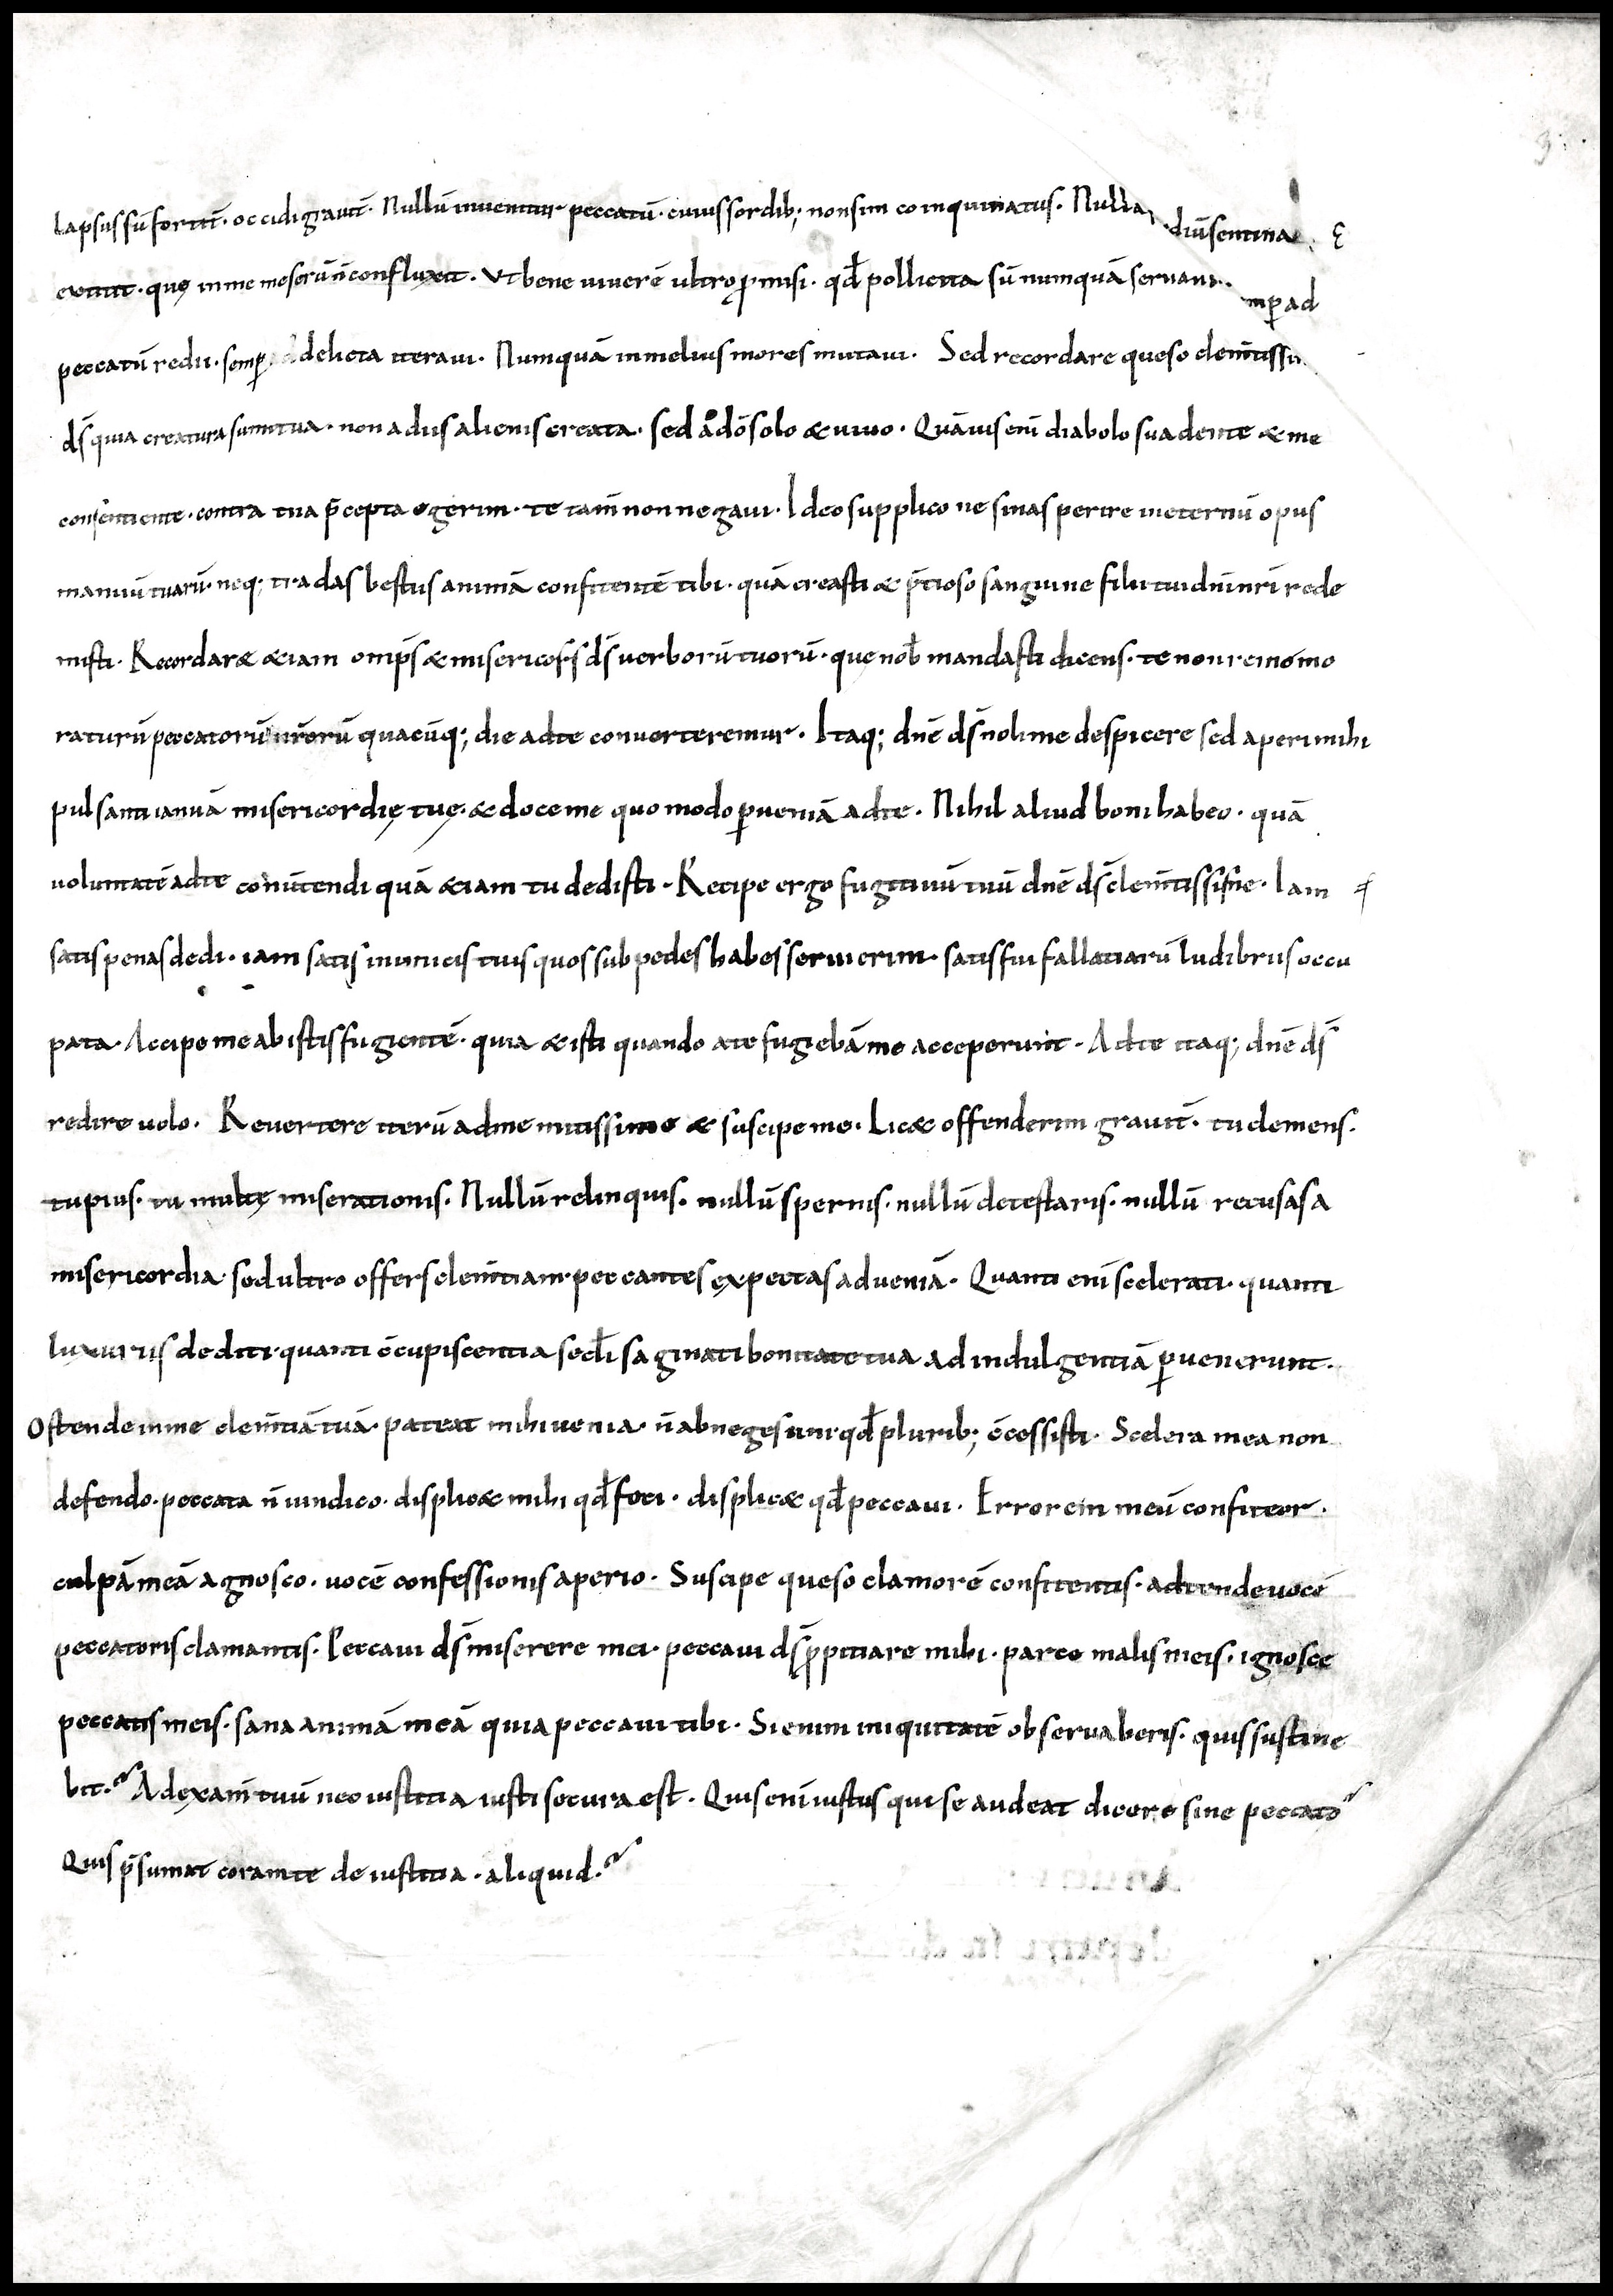 lapsus sū fortit̄. occidi grauit̄. Nullū inuenitur peccatū. cuius sordib; non sim coinquinatus. Nulla diū sentina
extitit. quę in me meserū n̄ confluxit. Vt bene uiuerē ultro ꝓmisi. qđ pollicita sū numquā seruaui. mꝑ ad
peccatū redii. semꝑ ad delicta iteraui. Numquā in melius mores mutaui. Sed recordare queso clem̄tissi
ds̄ quia creatura sum tua. non a diis alienis creata. sed a dō solo & uiuo. Quāuis eni diabolo suadente & me
consentiente. contra tua p̄cepta egerim. te tam̄ non negaui. Ideo supplico ne sinas perire in eternū opus
manuū tuarū. neq; tradas bestiis animā confitentē tibi. quā creasti & p̄tioso sanguine filii tui dn̄i nr̄i rede
misti. Recordare &iam omp̄s & misericors ds̄ uerborū tuorū. que nob̄ mandasti dicens. te non rememo
raturū peccatorū nr̄orū quacūq; die ad te conuerteremur. Itaq; dn̄e ds̄ noli me despicere sed aperi mihi
pulsanti ianuā misericordię tuę. & doce me quomodo ꝑueniā ad te. Nihil aliud boni habeo. quā
uoluntatē ad te conūtendi quā &iam tu dedisti. Recipe ergo fugitiuū tuū dn̄e ds̄ clem̄tissime. Iam
satis penas dedi. iam satis inimicis tuis quos sub pedes habes seruierim. satis fui fallatiarū ludibriis occu
pata. Accipe me ab istis fugientē. quia & isti quando a te fugiebā me acceperunt. Ad te itaq; dn̄e ds̄
redire uolo. Reuertere iterū ad me mitissime & suscipe me. Lic& offenderim grauit̄. tu clemens.
tu pius. tu multę miserationis. Nullū relinquis. nullū spernis. nullū detestaris. nullū recusas a
misericordia sed ultro offers clem̄tiam. peccantes expectas ad ueniā. Quanti eni scelerati. quanti
luxuriis dediti. quanti c̄cupiscentia sec̄li saginati bonitate tua ad indulgentiā ꝑuenerunt.
Ostende in me clem̄tiā tuā. pateat mihi uenia. n̄ abneges uni qđ plurib; c̄cessisti. Scelera mea non
defendo. peccata n̄ uindico. displic& mihi qđ feci. displic& qđ peccaui. Errorem meū confiteor.
culpā meā agnosco. uocē confessionis aperio. Suscipe queso clamorē confitentis. adtende uocē
peccatoris clamantis. Peccaui ds̄ miserere mei. peccaui ds̄ ꝓpitiare mihi. parce malis meis. ignosce
peccatis meis. sana animā meā quia peccaui tibi. Si enim iniquitatē obseruaberis. quis sustine
bit. Ad exam̄ tuū nec iustitia iusti secura est. Quis eni iustus qui se audeat dicere sine peccato
Quis p̄sumat coram te de iustitia. aliquid.